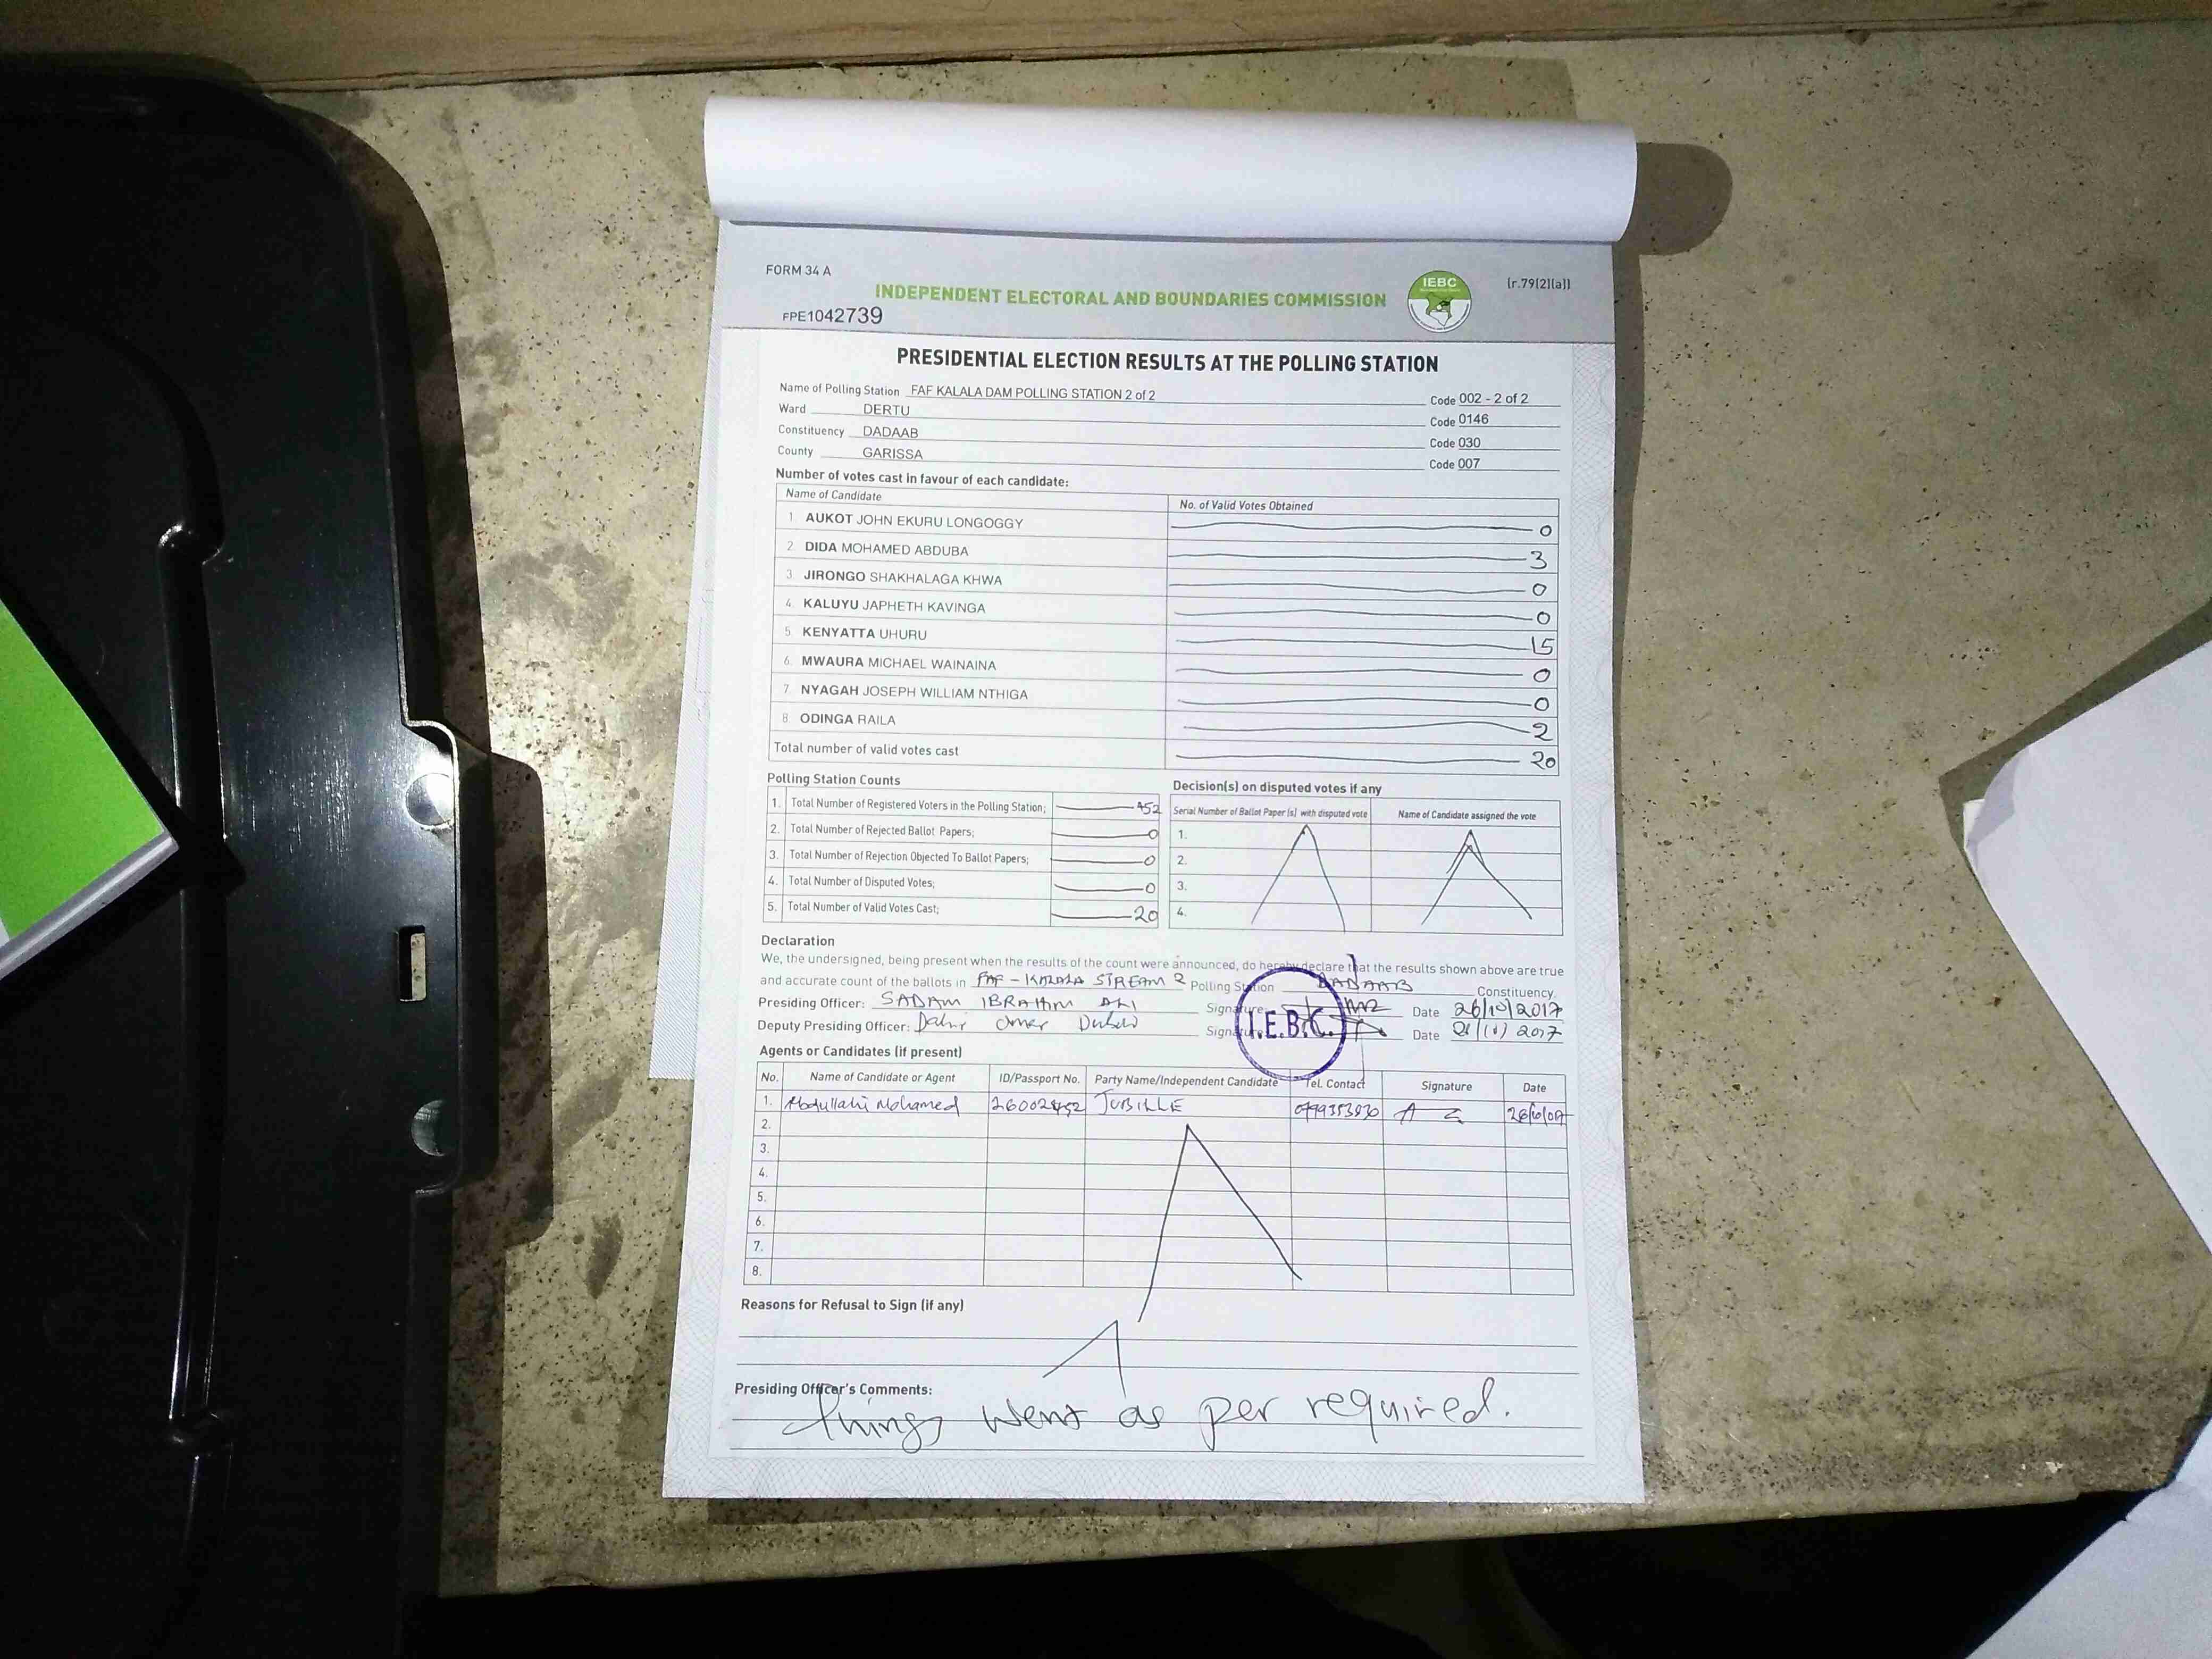 FORM 34 A
[r.79(2)(a)]
INDEPENDENT ELECTORAL AND BOUNDARIES COMMISSION
IEBC
FPE1042739
PRESIDENTIAL ELECTION RESULTS AT THE POLLING STATION
Name of Polling Station FAF KALALA DAM POLLING STATION 2 of 2 Code 002 - 2 of 2
Ward DERTU Code 0146
Constituency DADAAB Code 030
County GARISSA Code 007
Number of votes cast in favour of each candidate:
Name of Candidate No. of Valid Votes Obtained
1 AUKOT JOHN EKURU LONGOGGY 0
2. DIDA MOHAMED ABDUBA 3
3. JIRONGO SHAKHALAGA KHWA 0
4. KALUYU JAPHETH KAVINGA 0
5. KENYATTA UHURU 15
6. MWAURA MICHAEL WAINAINA 0
7. NYAGAH JOSEPH WILLIAM NTHIGA 0
8. ODINGA RAILA 2
Total number of valid votes cast 20
Polling Station Counts
1. Total Number of Registered Voters in the Polling Station; 452
2. Total Number of Rejected Ballot Papers; 0
3. Total Number of Rejection Objected To Ballot Papers; 0
4. Total Number of Disputed Votes; 0
5. Total Number of Valid Votes Cast; 20
Decision(s) on disputed votes if any
Serial Number of Ballot Paper (s) with disputed vote Name of Candidate assigned the vote
1.
2.
3.
4.
Declaration
We, the undersigned, being present when the results of the count were announced, do hereby declare that the results shown above are true
and accurate count of the ballots in FAF - KALALA STREAM 2 Polling Station DADAAB Constituency.
Presiding Officer: SADAM IBRAHIM ALI Signature Date 26/10/2017
Deputy Presiding Officer: Dahir Omar Signature Date 2017
I.E.B.C.
Agents or Candidates (if present)
No. Name of Candidate or Agent ID/Passport No. Party Name/Independent Candidate Tel. Contact Signature Date
1. Abdullahi Mohamed JUBILLE
2.
3.
4.
5.
6.
7.
8.
Reasons for Refusal to Sign (if any)
Presiding Officer's Comments:
things went as per required.